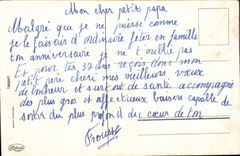 Mon cher petit papa
Malgré que je ne puisse comme
je le faisais d'ordinaire fêter en famille
ton anniversaire je ne t'oublie pas
Et pour tes 37 ans reçois dont mon
petit père chéri mes meilleurs vœux
de bonheur et surtout de santé accompagné
des plus gros et affectueux baisers capable de
sortir du plus profond du cœur de ton